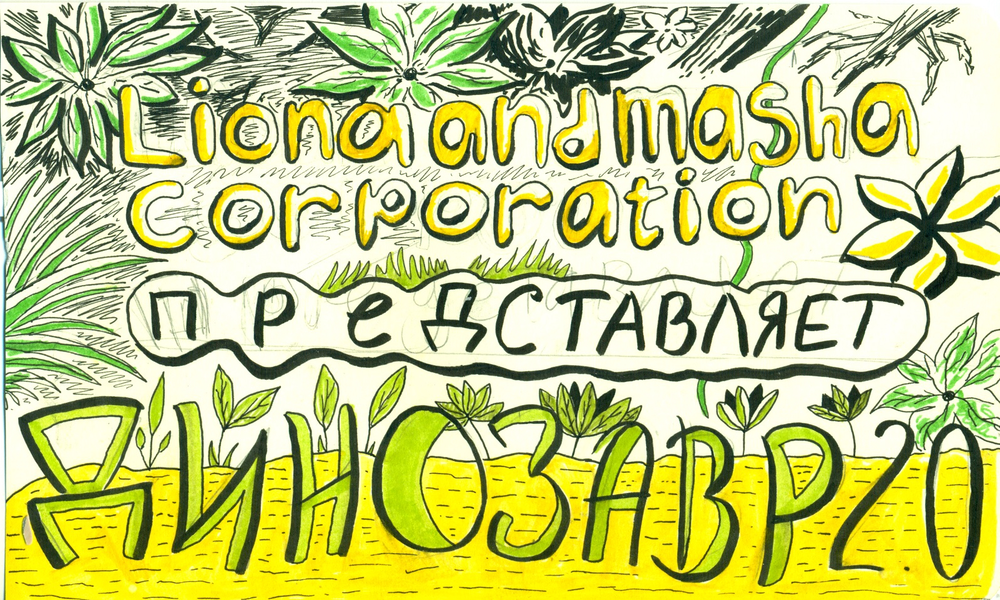 Liona and masha
corporation
ПРеДСТАВЛЯЕТ
ДИНОЗАВР 2.0